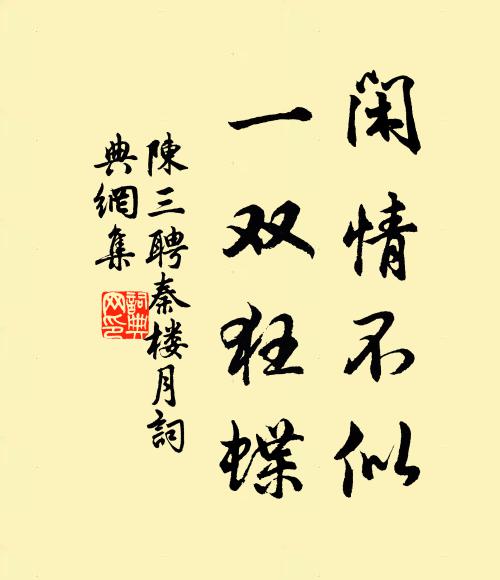 闲情不似
一双狂蝶
陳三聘秦楼月詞
典網集
詞典网印